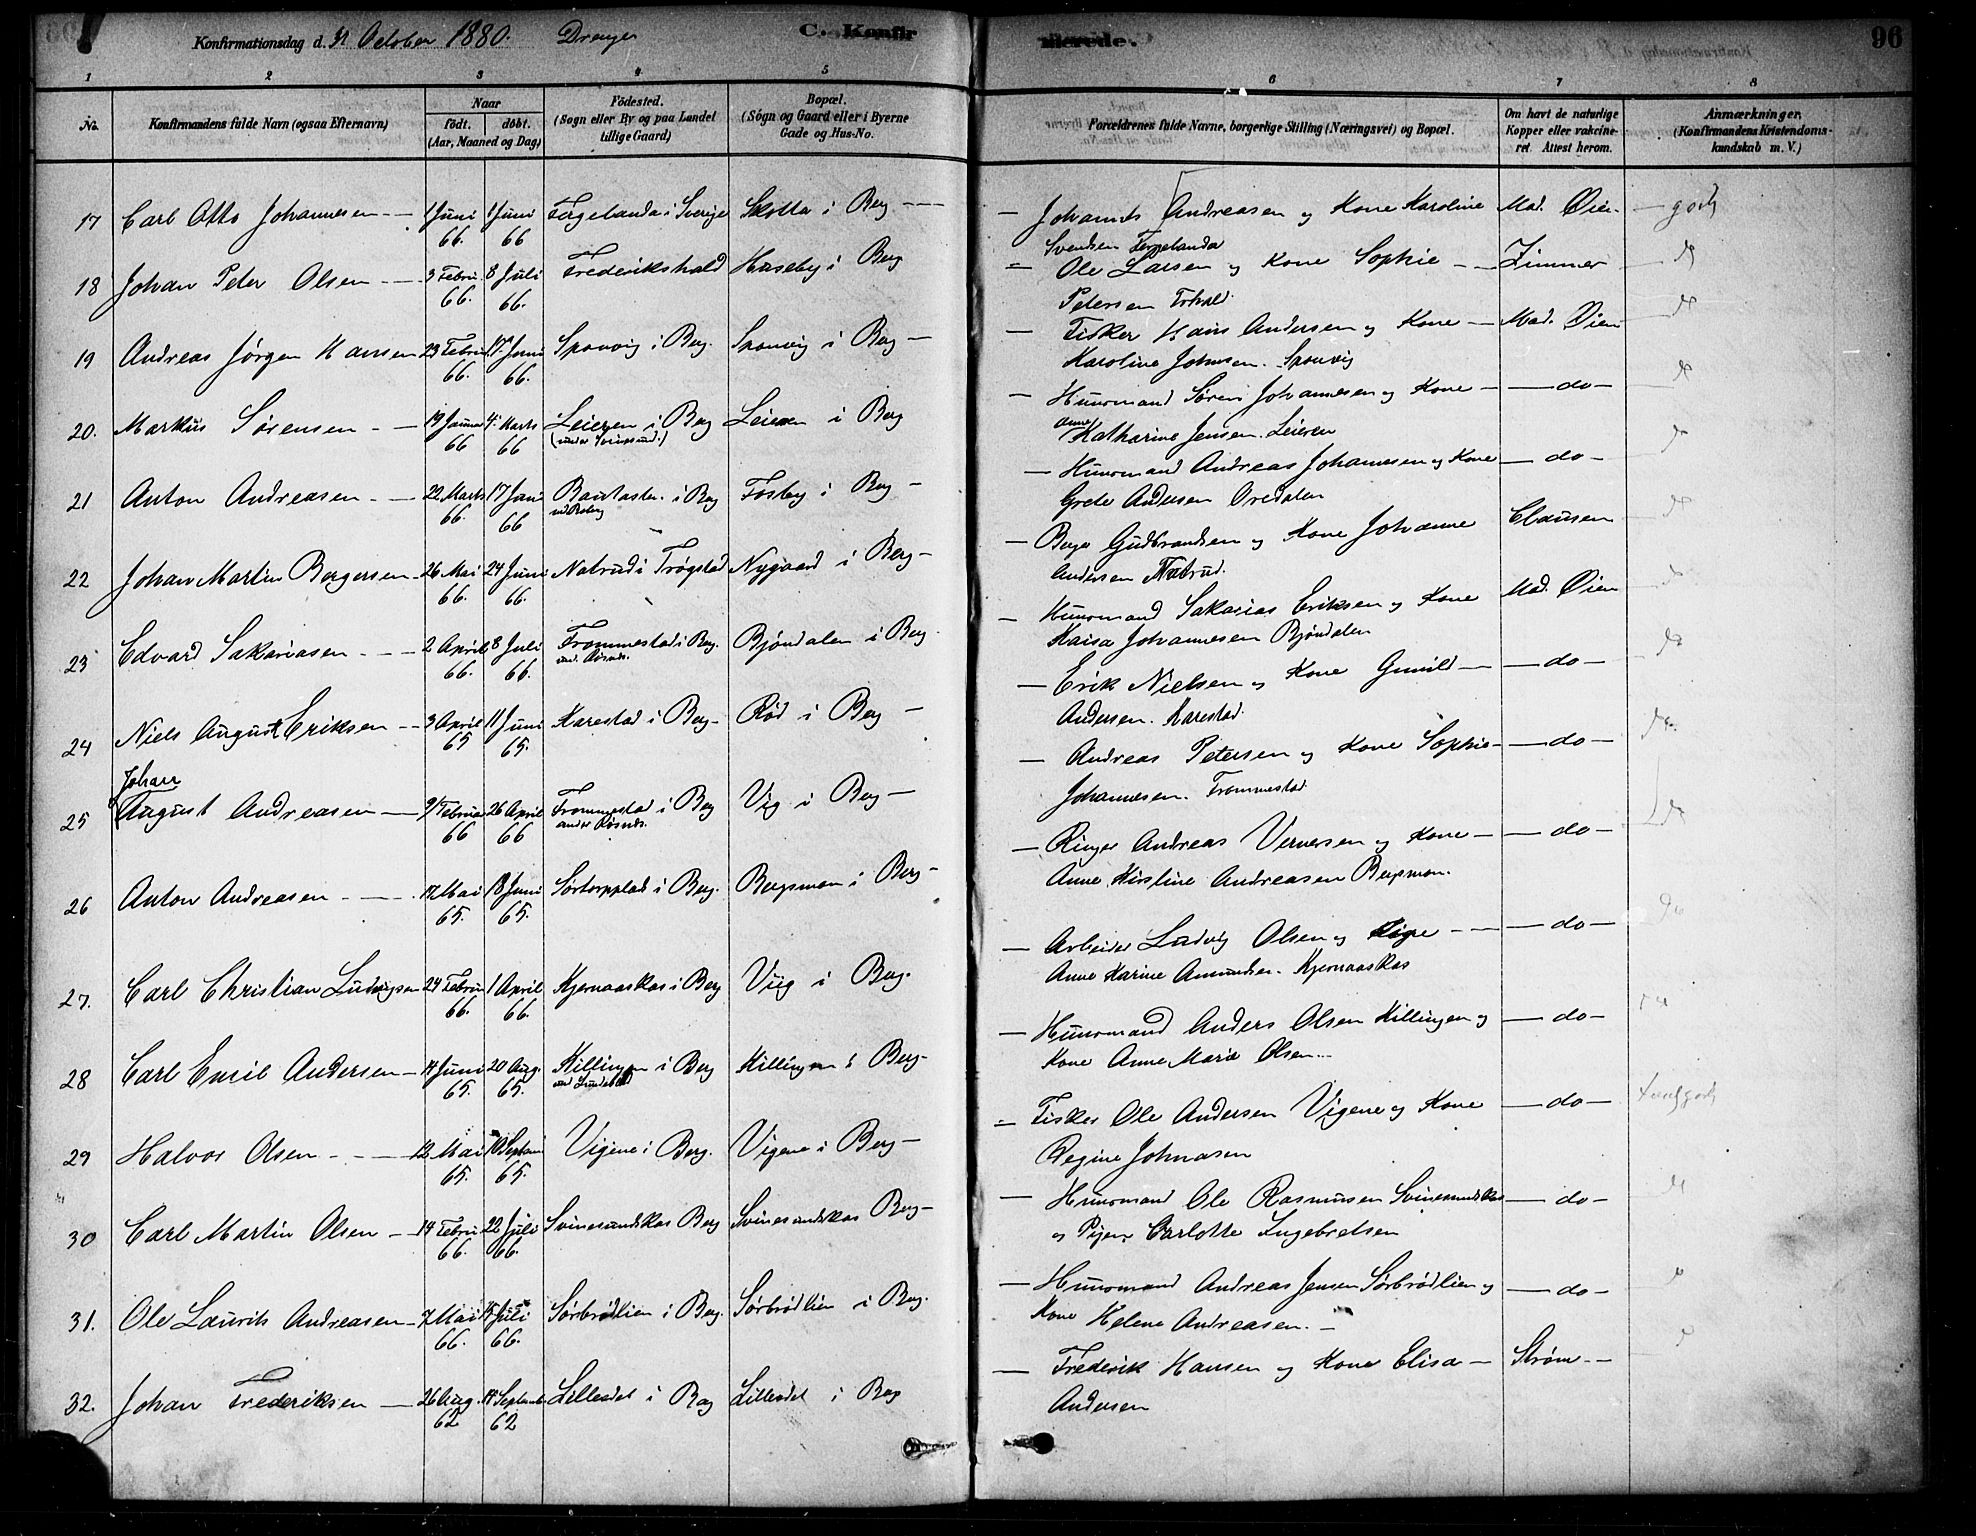 Konfirmationsdag d. 31 October 1880. Drenge C. Konfir
merede. 96
1 2 3 4 5 6 7 8
No.
Konfirmandens fulde Navn (ogsaa Efternavn)
Naar
födt. döbt.
(Aar, Maaned og Dag)
Födested.
(Sogn eller By og paa Landet
tillige Gaard)
Bopæl.
(Sogn og Gaard eller i Byerne
Gade og Hus-No.
Forældrenes fulde Navne, borgerlige Stilling (Næringsvei) og Bopæl.
Om havt de naturlige
Kopper eller vakcine-
ret. Attest herom.
Anmærkninger.
(Konfirmandens Kristendoms-
kundskab m. V.)
17 Carl Otto Johannesen 1 Juni 66. 1 Juni 66 Fergelanda i Sverige Skotta i Berg
Johannes Andreasen og Kone Karoline Mad. Øien godt
Svendsen Fergelanda
18 Johan Peter Olsen 3 Febru 66. 8 Juli 66. Frederikshald Huseby i Berg
Ole Larsen og Kone Sophie Zimmer do
Petersen Frhald.
19 Andreas Jørgen Hansen 23 Febru 66. Juni 66. Sponvig i Berg. Sponvig i Berg
Fisker Hans Andersen og Kone Mad. Øien do
Karoline Johnsen. Sponvig
20. Markus Sørensen 19 Janua 66 4 Marts 66 Leieren i Berg Leieren i Berg
Huusmand Søren Johannesen og Kone do do
Anne Katharine Jensen. Leieren
21 Anton Andreasen 22 Marts 66. 17 Juni 66 i Berg Fosby i Berg
Huusmand Andreas Johannesen og Kone do do
Grete Andersen Oredalen
22 Johan Martin Bergersen 26 Mai 66. 24 Juni 66. Natrud i Trøgstad Nygaard i Berg
Berger Gudbrandsen og Kone Johanne Clausen do
Andersen Natrud.
23 Edvard Sakariasen 2 April 66. 8 Juli 66. Frommestad i Berg. Bjøndalen i Berg
Huusmand Sakarias Eriksen og Kone Mad. Øien do
Kaisa Johannesen Bjøndalen
24 Niels August Eriksen 3 April 65 11 Juni 65. Karestad i Berg Rød i Berg
Erik Nielsen og Kone Gunild do do
Andersen. Karestad.
25 Johan August Andreasen 9 Februa 66 26 April 66 Frommestad i Berg Vig i Berg
Andreas Petersen og Kone Sophie do do
Johannesen. Frommestad
26 Anton Andreasen 17 Mai 65. 18 Juni 65. Sørtorpplad i Berg. Bergsmon i Berg
Ringer Andreas Vernersen og Kone do do
Anne Kirstine Andreasen Bergsmon.
27. Carl Christian Ludvigsen 24 Febru 66. 1 April 66. Kjernaaskas i Berg Viig i Berg.
Arbeider Ludvig Olsen og do do
Anne Karine Amundsen. Kjernaaskas
28 Carl Emil Andersen 14 Juni 65. 20 Aug. 65. Killingen i Berg Killingen i Berg
Huusmand Anders Olsen Killingen og do
Kone Anne Maria Olsen
29 Halvor Olsen 12 Mai 65. 10 Septem 65. Vigene i Berg. Vigene i Berg
Fisker Ole Andersen Vigene og Kone do
Regine Johnasen
30 Carl Martin Olsen 14 Febru 66. 22 Juli 66. Svinesundskas Berg Svinesundskas Berg
Huusmand Ole Rasmusen Svinesundskas do
og Pigen Carlotte Ingebretsen
31. Ole Laurits Andreasen 7 Mai 66. 15 Juli 66. Sørbrødlien i Berg. Sørbrødlien i Berg.
Huusmand Andreas Jensen Sørbrødlien og do
Kone Helene Andreasen.
32. Johan Frederiksen 26 Aug. 62 14 Septemb 62 Lilledal i Berg Lilledal i Berg
Frederik Hansen og Kone Elisa Strøm
Andersen